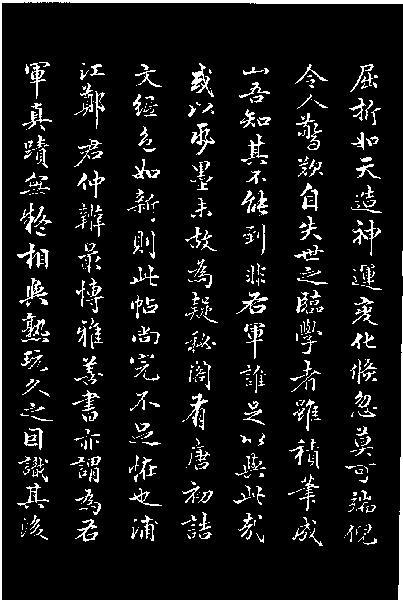 屈折如天造神運變化倏忽莫可端倪
令人驚歎自失世之臨學者雖禎筆成
山吾知其不能到非右軍誰足以與此哉
或以帋墨未故為疑秘閣有唐初誥
文絙色如新則此帖尚完不足怪也浦
江鄭君仲辨最博雅善書亦謂為右
軍真蹟無疑相與熟玩久之因識其後